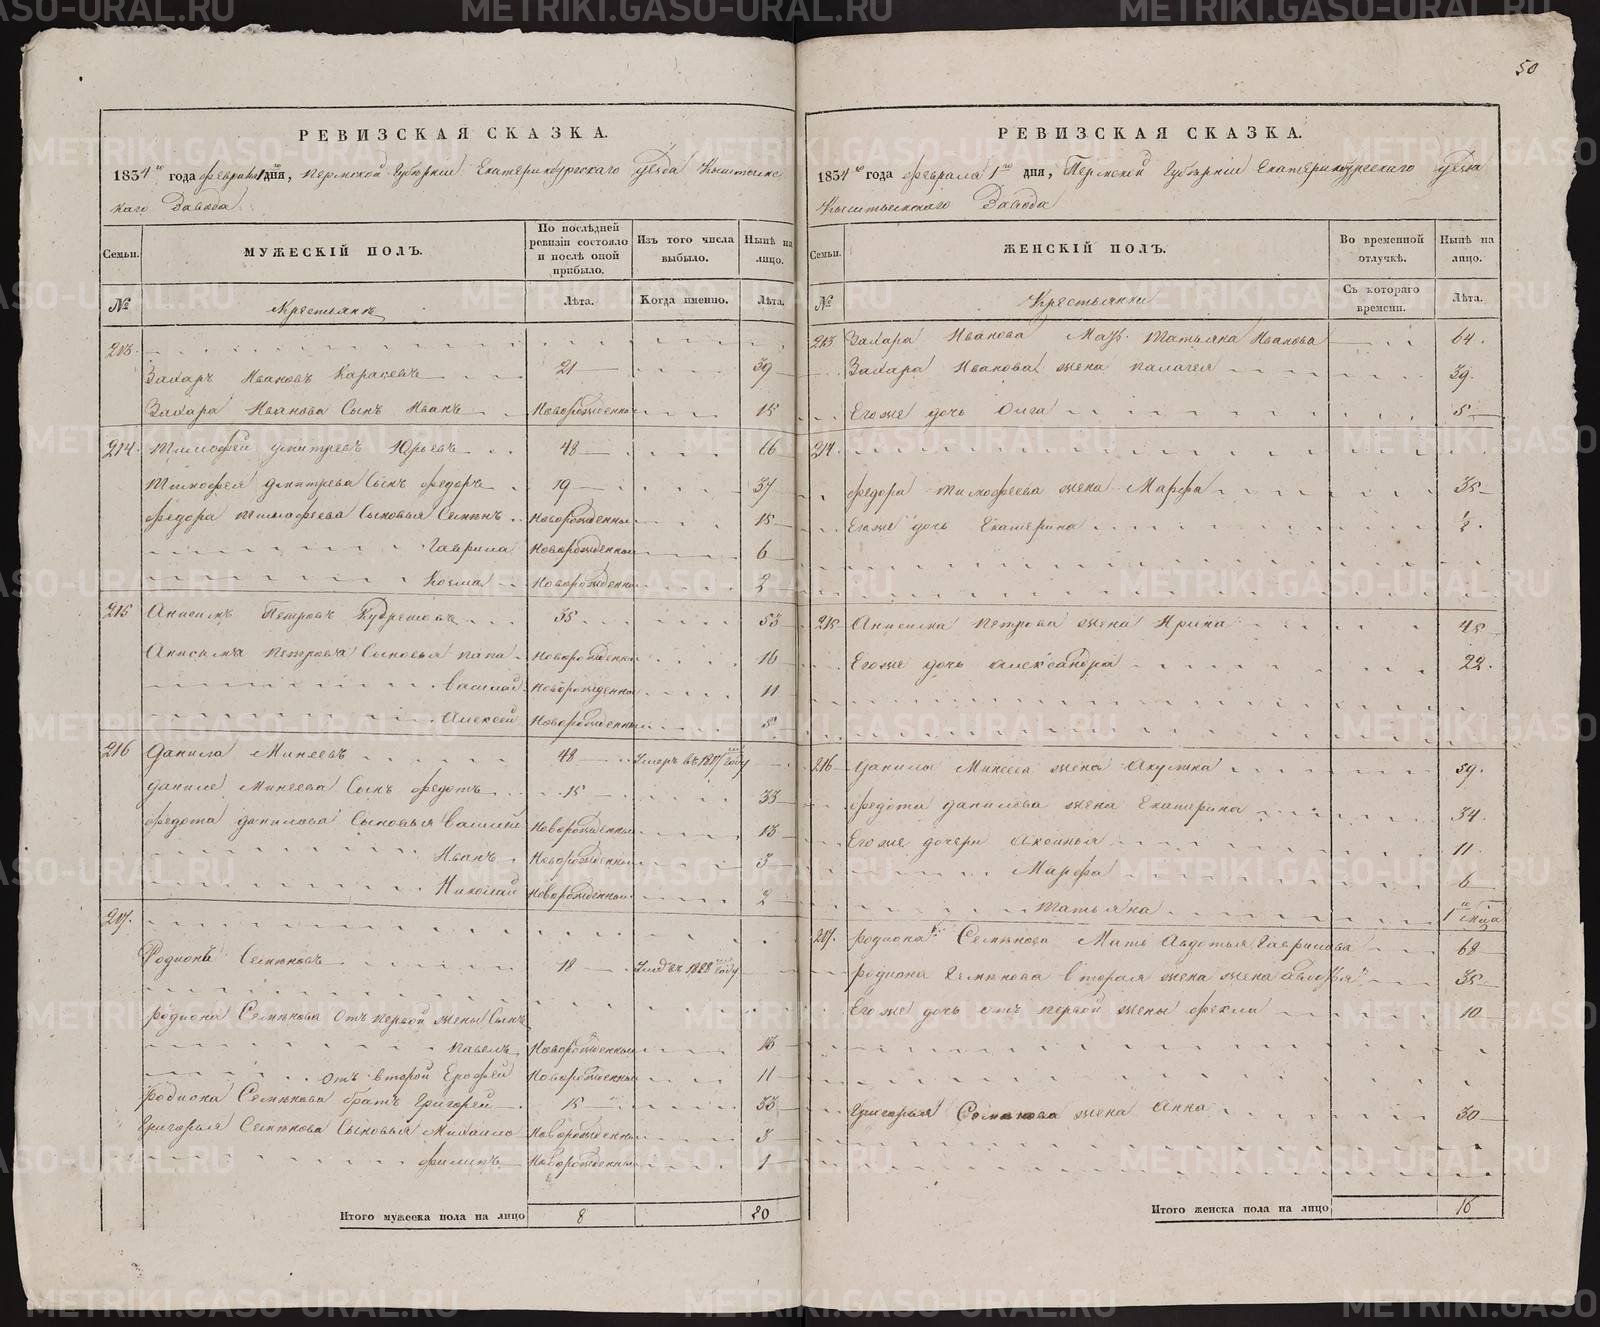 50
РЕВИЗСКАЯ СКАЗКА.
1834го года февраля 1 дня, Пермской Губернии Екатеринбургского уезда Кыштымс
каго Завода
Семьи. МУЖЕСКІЙ ПОЛЪ. По послѣдней ревизіи состояло и послѣ оной прибыло. Изъ того числа выбыло. Нынѣ на лицо.
№ Крестьянъ Лѣта. Когда именно. Лѣта.
213.
Захаръ Ивановъ Карасевъ 21 39
Захара Иванова Сынъ Иванъ Новорожденны 15
214. Тимофей Дмитревъ Юрьевъ 48 66
Тимофея Дмитрева Сынъ Федоръ 19 37
Федора Тимофеева Сыновья Семенъ Новорожденны 15
Гаврила Новорожденны 6
Козма Новорожденны 2
215 Анисимъ Петровъ 35 53
Анисима Петрова Сыновья Новорожденны 16
Василий Новорожденны 11
Алексей Новорожденны 5
216 Данила Минеевъ 48 Умеръ въ году
Данилы Минеева Сынъ Федотъ 15 33
Федота Данилова Сыновья Василий Новорожденны 13
Иванъ Новорожденны 3
Николай Новорожденны 2
217.
Родионъ Семеновъ 18 въ 1828 году
Родиона Семенова Отъ первой жены Сынъ
Павелъ Новорожденны
отъ второй Ерофей Новорожденны 11
Родиона Семенова братъ Григорей 15 33
Григорья Семенова Сыновья Михаило Новорожденны 3
Филипъ Новорожденны 1
Итого мужеска пола на лицо 8 20
РЕВИЗСКАЯ СКАЗКА.
1834го года февраля 1го дня, Пермской Губернии Екатеринбургского уезда
Кыштымского Завода
Семьи. ЖЕНСКІЙ ПОЛЪ. Во временной отлучкѣ. Нынѣ на лицо.
№ Крестьянки Съ котораго времени. Лѣта.
213 Захара Иванова Татьяна Иванова 64.
Захара Иванова жена Палагея 39.
Его же дочь Олга 5
214.
Федора Тимофеева жена Марфа 35
Его же дочь Екатерина ½.
215 Анисима Петрова жена Ирина 45
Его же дочь Александра 22.
216 Данилы Минеева жена Акулина 59.
Федота Данилова жена Екатерина 34.
Его же дочери Аксинья 11
Марфа 6
Татьяна 1
217. Родиона Семенова Мать Авдотья Гаврилова 68
Родиона Семенова вторая жена жена 35
Его же дочь отъ первой жены Фекла 10
Григорья Семенова жена Анна 30
Итого женска пола на лицо 16
METRIKI.GASO-URAL.RU